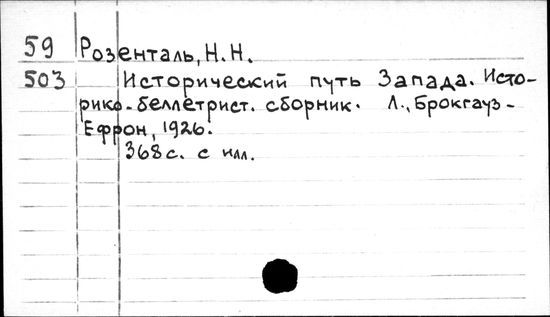 59 Розенталь, Н.Н.
503 Исторический путь Запада. Исто-
рико-беллетрист. сборник. Л., Брокгауз-
Ефрон, 1926.
368с. с илл.